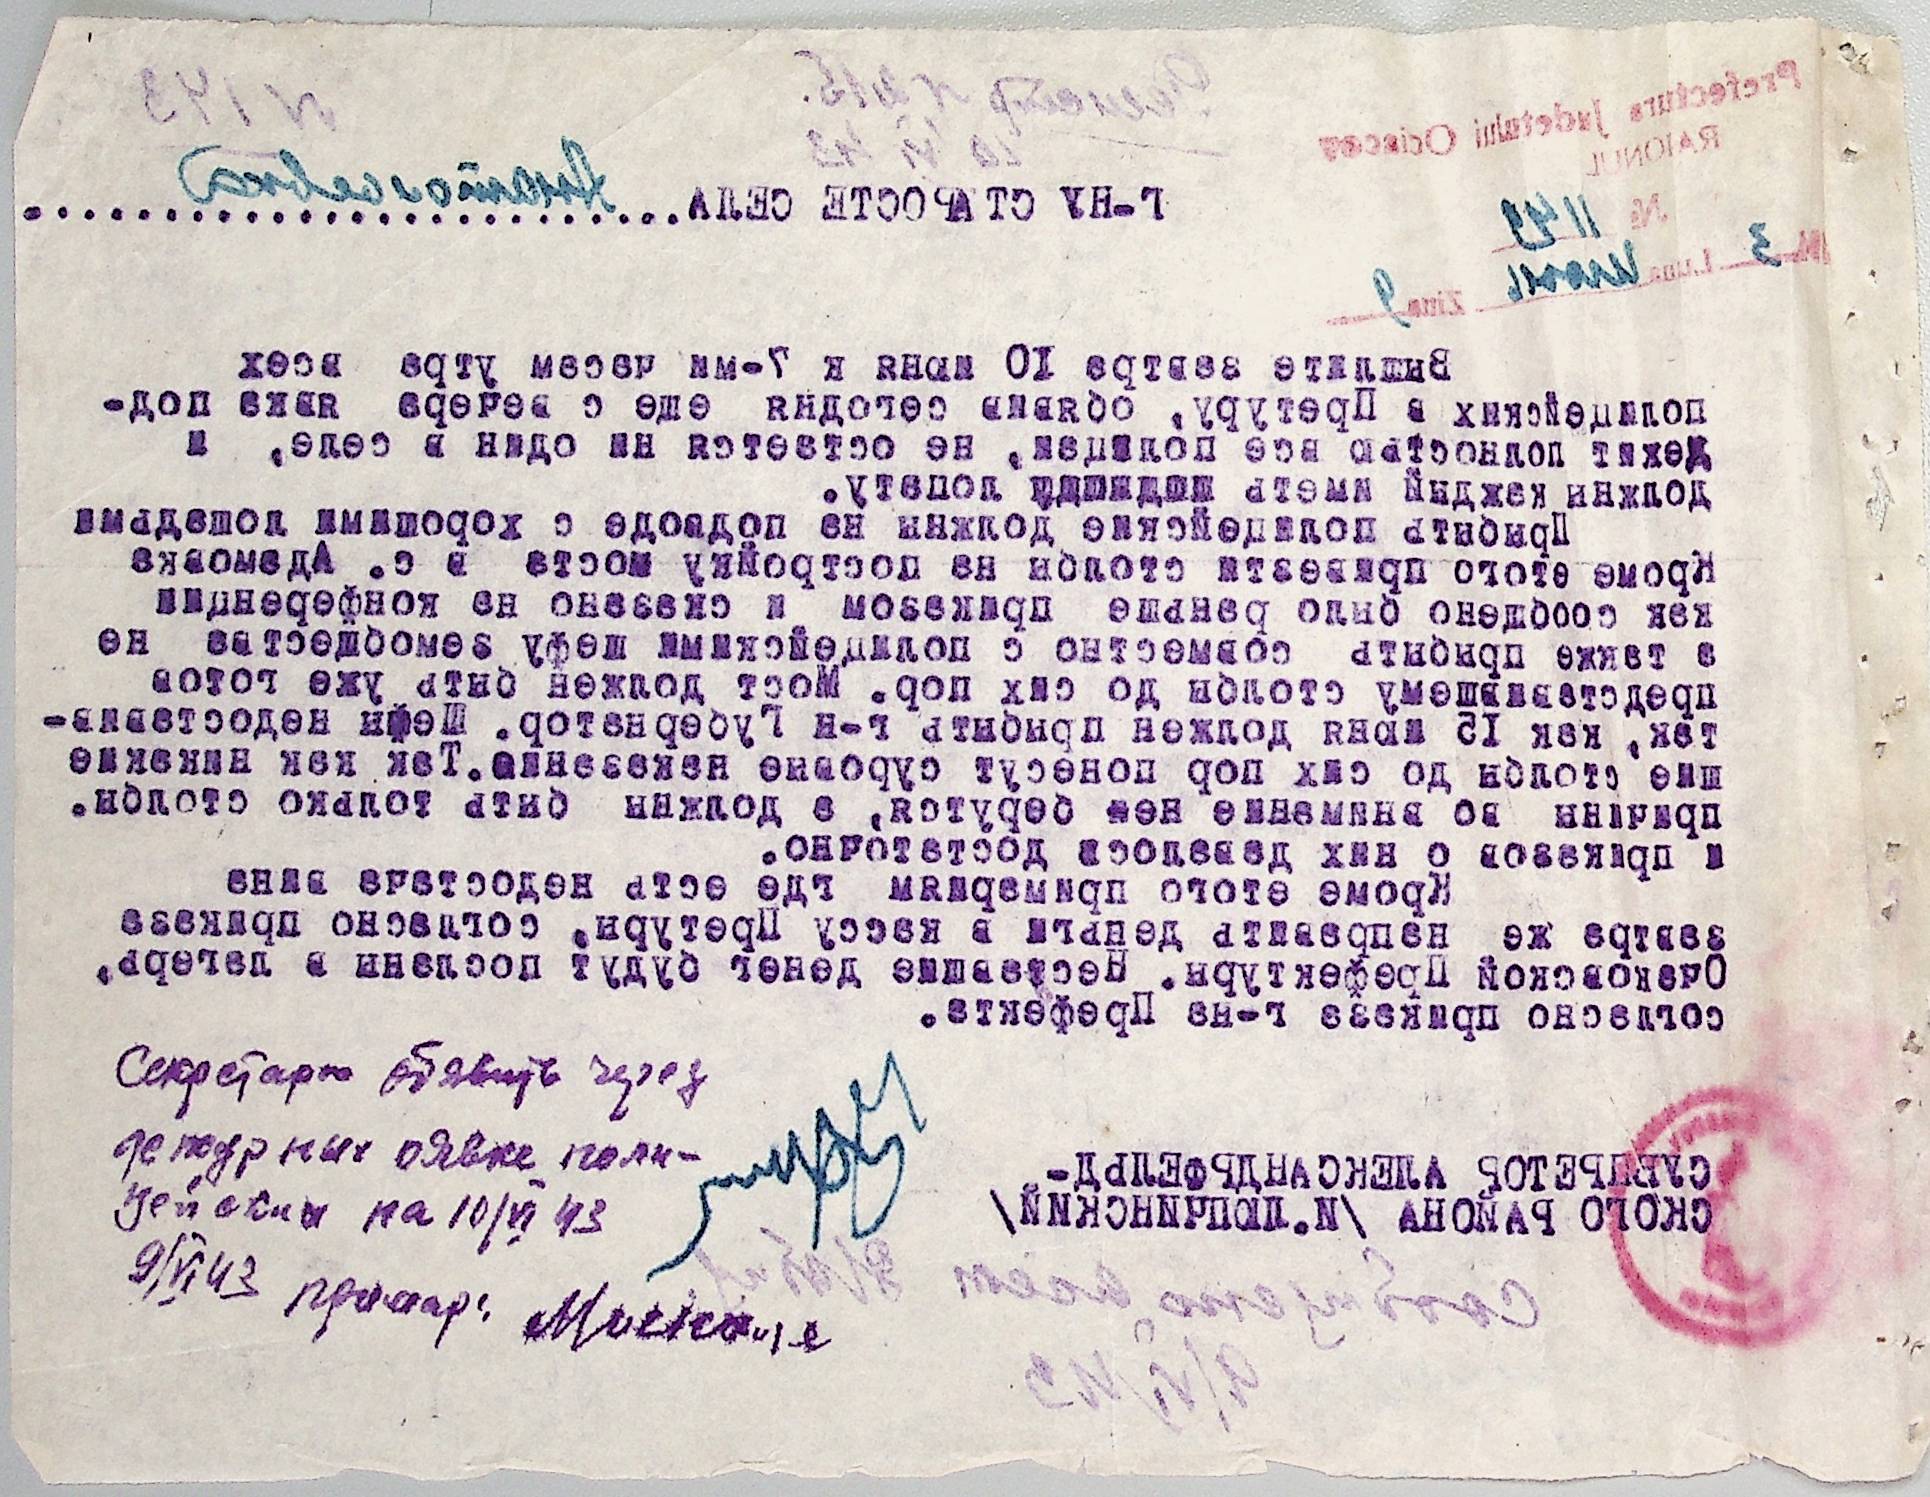 Prefectura Judetului Oceacov
RAIONUL
№ 1149
3 Luna Июнь Ziua 9
Регистр N 215.
10 VI 43
N 143
Г-НУ СТАРОСТЕ СЕЛА.......Анатольевка
Вышлите завтра 10 июня к 7-ми часам утра всех
полицейских в Претуру, обявив сегодня еще с вечера явка под-
лежит полностью все полицаи, не остается ни один в селе, и
должны каждый иметь лопату.
Прибыть полицейские должны на подводе с хорошими лошадьми
Кроме этого привезти столбы на постройку моста в с. Адамовка
как сообщено было раньше приказом и сказано на конференции
а также прибыть совместно с полицейскими шефу земобщества не
представившему столбы до сих пор. Мост должен быть уже готов
так, как 15 июня должен прибыть г-н Губернатор. Шефы недоставив-
шие столбы до сих пор понесут суровые наказание. Так как никакие
причины во внимание не берутся, а должны быть только столбы.
и приказов о них давалося достаточно.
Кроме этого примариям где есть недостача вина
завтра же направить деньги в кассу Претуры, согласно приказа
Очаковской Префектуры. Недавшие денег будут посланы в лагерь,
согласно приказа г-на Префекта.
СУБПРЕТОР АЛЕКСАНДРФЕЛЬД-
СКОГО РАЙОНА /И.ЛЮПЧИНСКИЙ/
Сообщено всем
9/VI/43
Секретарю обявить через
дежурных оявке поли-
цейских на 10/VI 43
9/VI 43 примарь